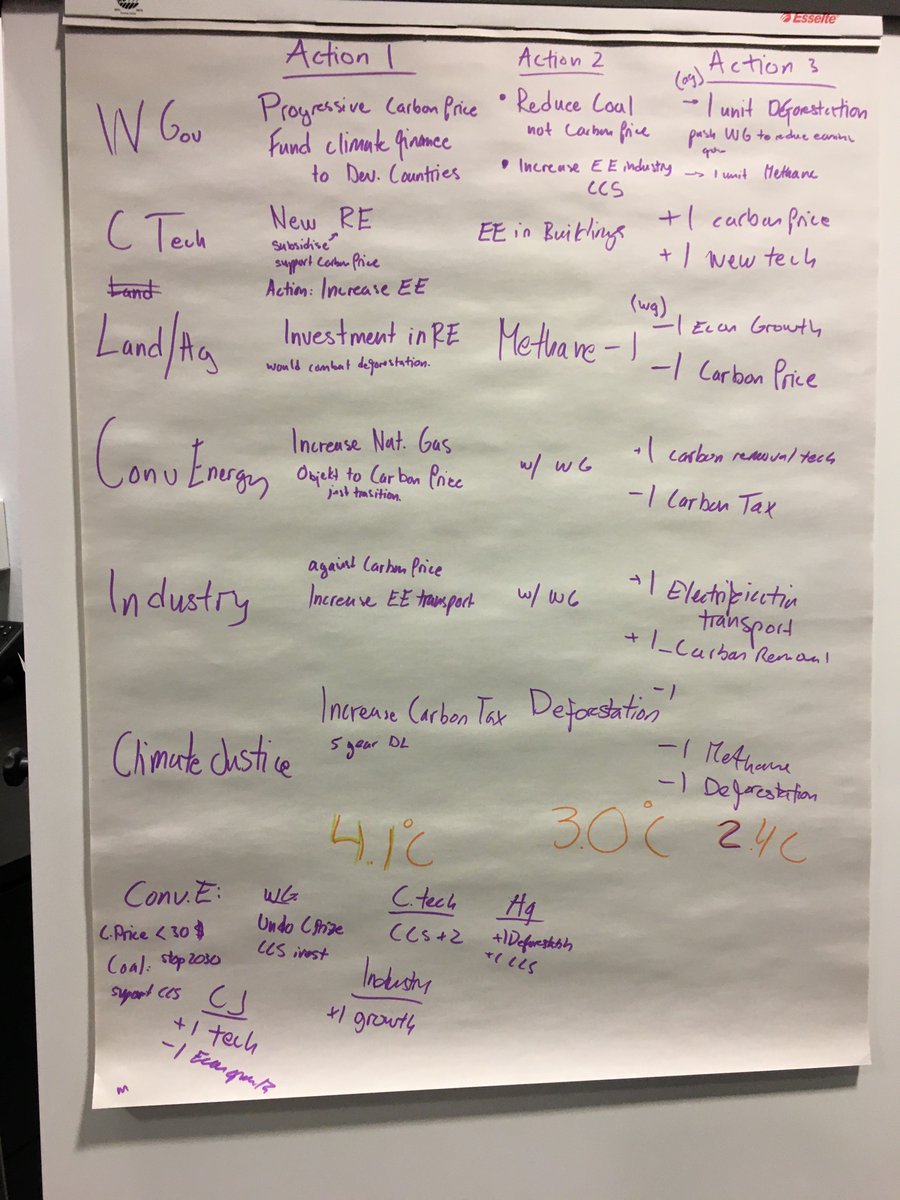 Esselte
Action 1
Action 2
Action 3
W Gov
Progressive Carbon Price
Fund climate finance
to Dev. Countries
• Reduce Coal
not Carbon Price
• Increase EE industry
CCS
(ag)
→ 1 unit Deforestation
push WG to reduce
→ 1 unit Methane
C Tech
New RE
subsidise
support Carbon Price
Action: Increase EE
EE in Buildings
+1 carbon price
+1 New tech
Land
Land/Ag
Investment in RE
would combat deforestation.
Methane -1
(wg)
-1 Econ Growth
-1 Carbon Price
Conv Energy
Increase Nat. Gas
Objekt to Carbon Price
just trasition.
w/ WG
+1 carbon removal tech
-1 Carbon Tax
Industry
against Carbon Price
Increase EE transport
w/ WG
+1
transport
+1 Carbon Removal
Climate Justice
Increase Carbon Tax
5 year DL
Deforestation -1
-1 Methane
-1 Deforestation
4.1°C
3.0°C
2.4C
Conv.E:
C.Price < 30 $
Coal: stop 2030
suport CCS
WG
Undo
CCS
C.tech
CCS +2
Ag
+1
+1 CCS
CJ
+1 tech
-1 Econ
Industry
+1 growth